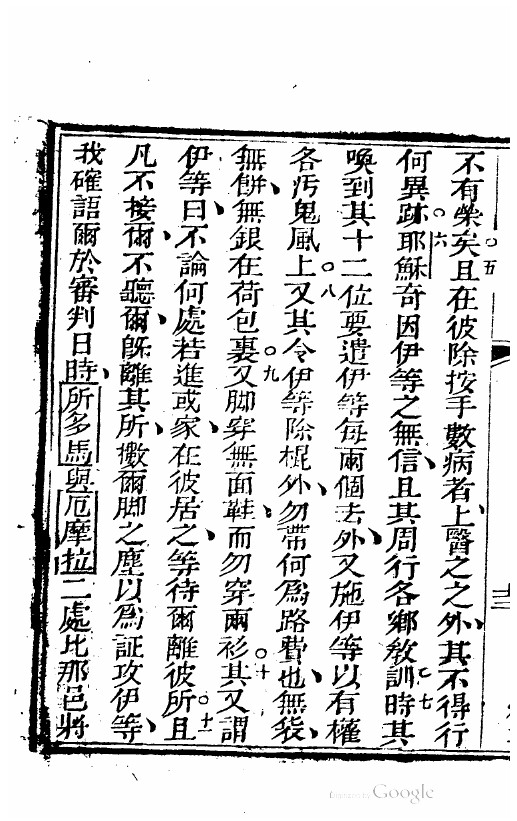 不有榮矣且在彼除按手數病者上醫之之外其不得行
何異跡耶穌奇因伊等之無信且其周行各鄉敎訓時其
喚到其十二位要遣伊等每兩個去外又施伊等以有權
各汚鬼風上又其令伊等除棍外勿帶何爲路費也無袋
無餅無銀在荷包裏又脚穿無面鞋而勿穿兩衫其又謂
伊等曰不論何處若進或家在彼居之等待爾離彼所且
凡不接爾不聽爾旣離其所擻爾脚之塵以爲証攻伊等
我確語爾於審判日時所多馬與厄摩拉二處比那邑將
○五
○六
○七
○八
○九
○十
○十一
Google